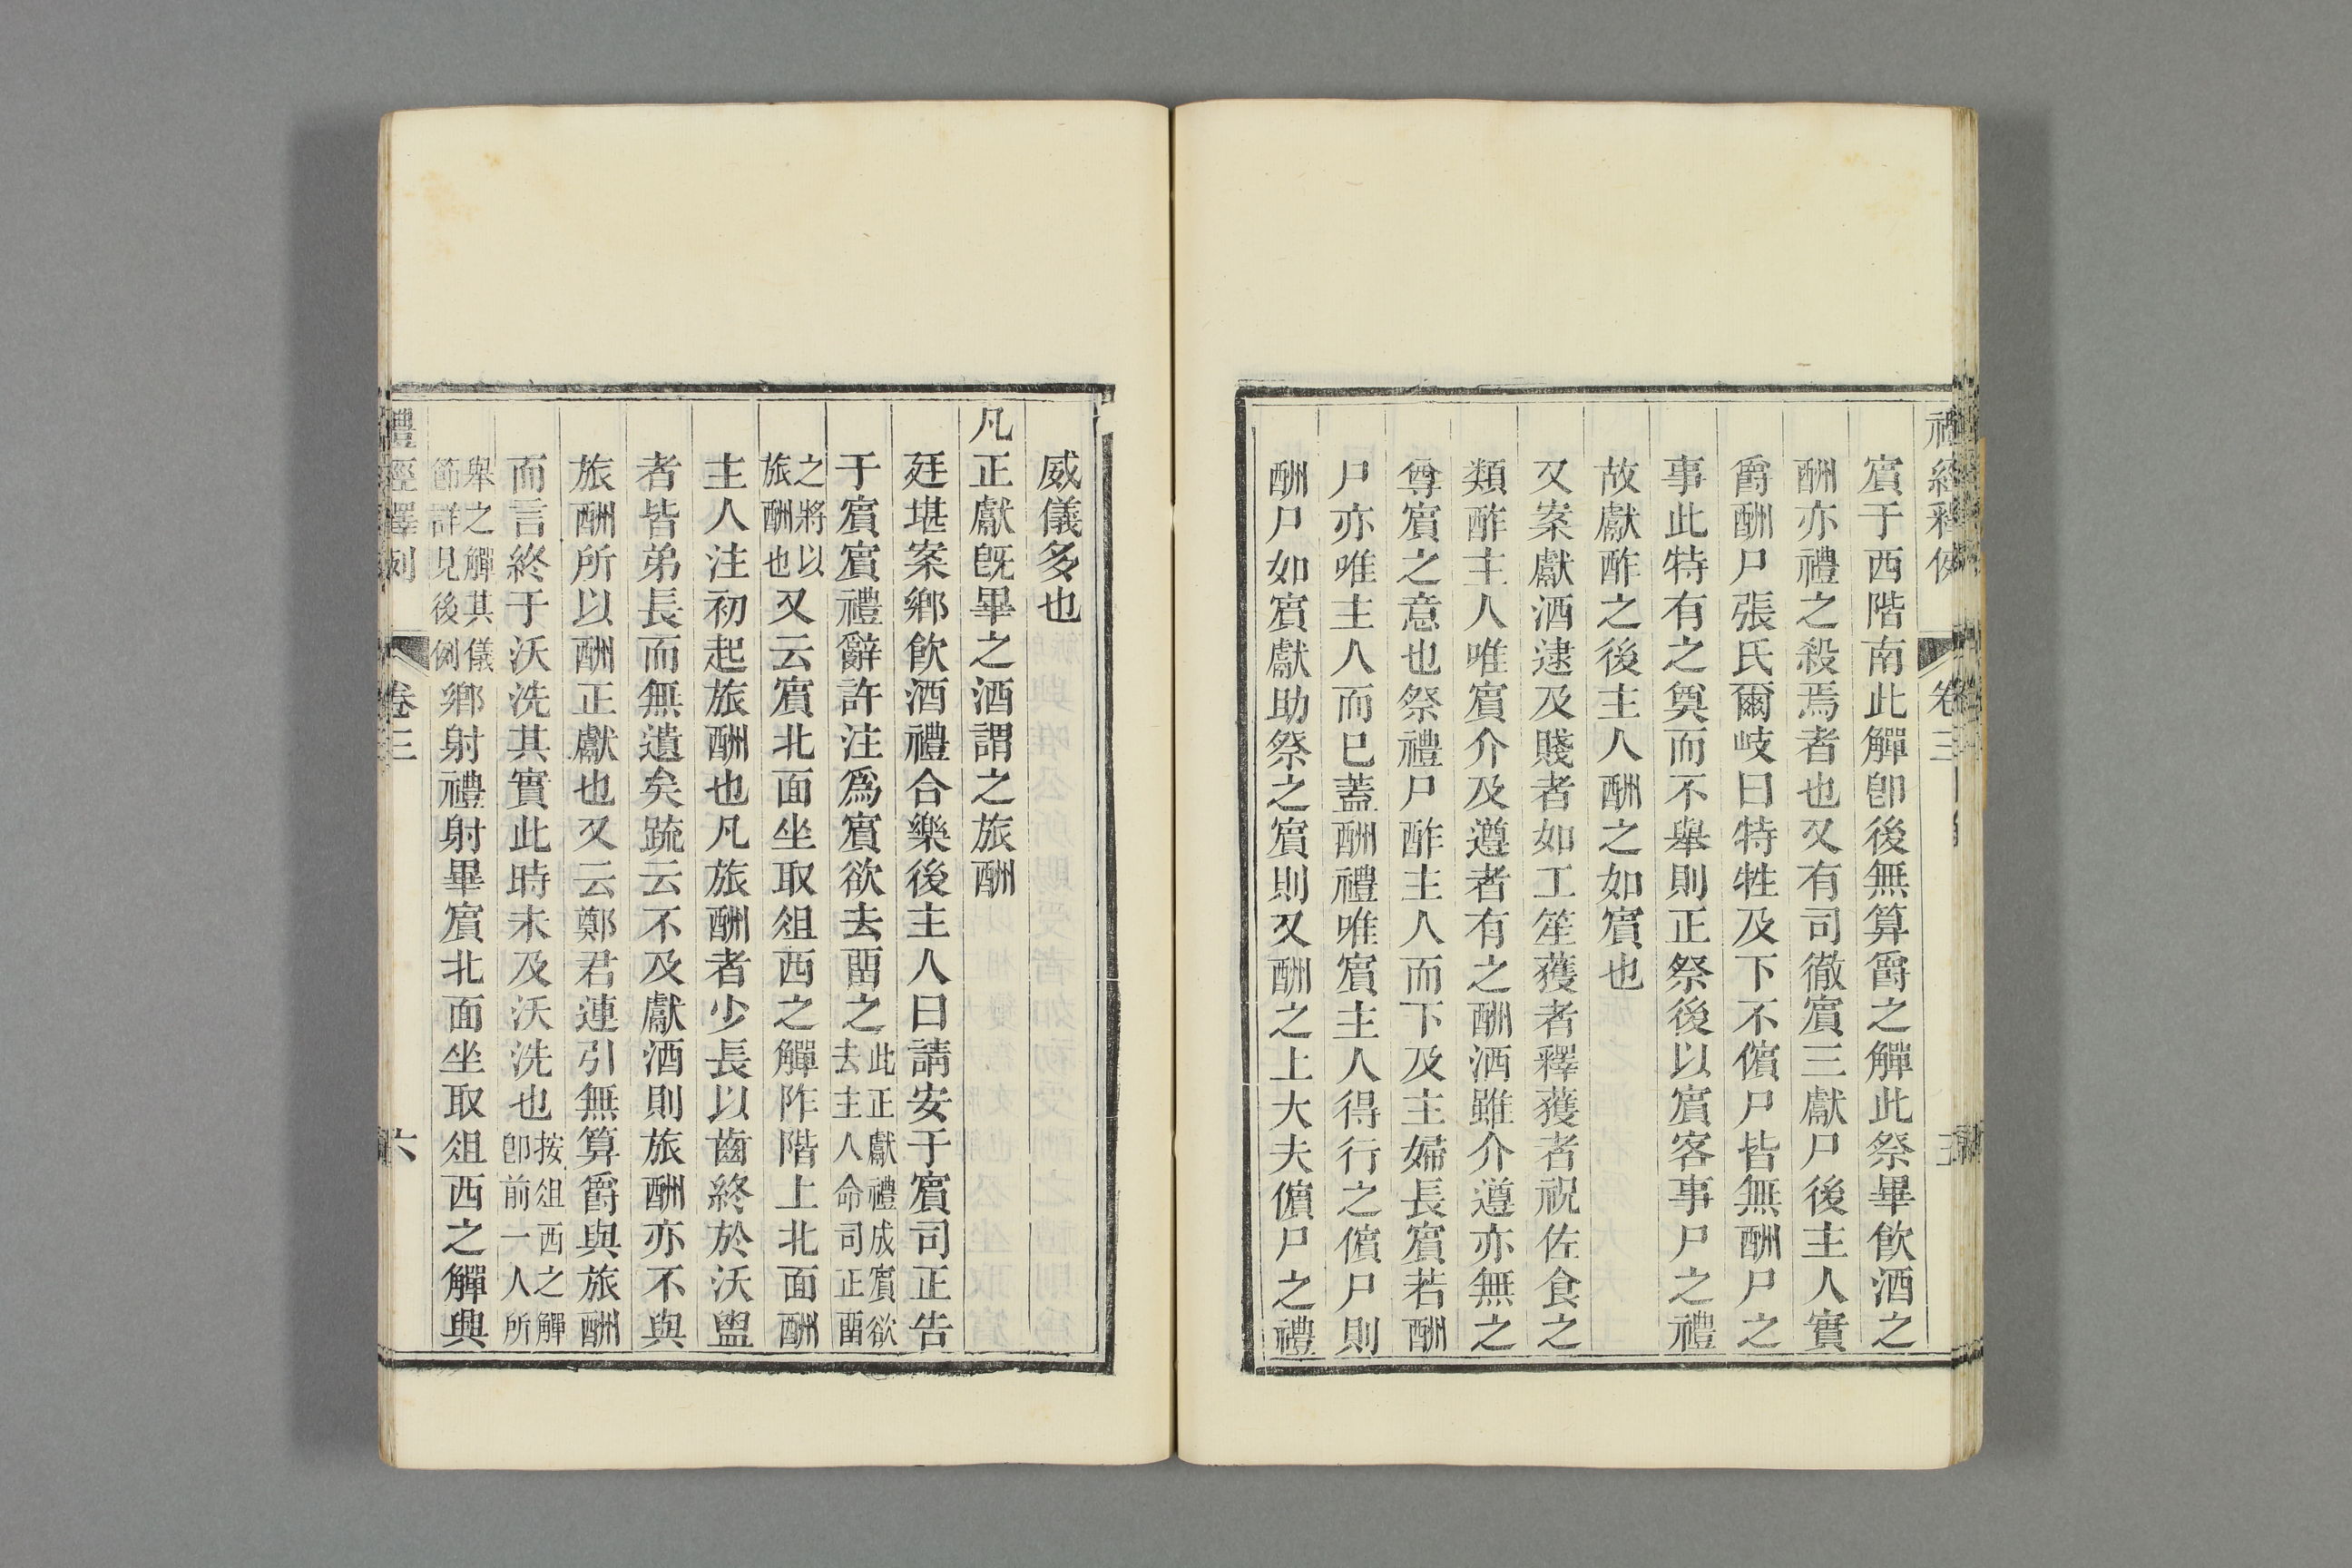 禮經釋例 卷三
賓于西階南此觶卽後無算爵之觶此祭畢飮酒之
酬亦禮之殺焉者也又有司徹賓三獻尸後主人實
爵酬尸張氏爾岐曰特牲及下不儐尸皆無酬尸之
事此特有之奠而不舉則正祭後以賓客事尸之禮
故獻酢之後主人酬之如賓也
又案獻酒逮及賤者如工笙獲者釋獲者祝佐食之
類酢主人唯賓介及遵者有之酬酒雖介遵亦無之
尊賓之意也祭禮尸酢主人而下及主婦長賓若酬
尸亦唯主人而已蓋酬禮唯賓主人得行之儐尸則
酬尸如賓獻助祭之賓則又酬之上大夫儐尸之禮
威儀多也
凡正獻旣畢之酒謂之旅酬
廷堪案鄉飮酒禮合樂後主人曰請安于賓司正告
于賓賓禮辭許注爲賓欲去畱之此正獻禮成賓欲去主人命司正畱
之將以旅酬也又云賓北面坐取俎西之觶阼階上北面酬
主人注初起旅酬也凡旅酬者少長以齒終於沃盥
者皆弟長而無遺矣疏云不及獻酒則旅酬亦不與
旅酬所以酬正獻也又云鄭君連引無算爵與旅酬
而言終于沃洗其實此時未及沃洗也按俎西之觶卽前一人所
舉之觶其儀節詳見後例鄉射禮射畢賓北面坐取俎西之觶興
禮經釋例 卷三 六